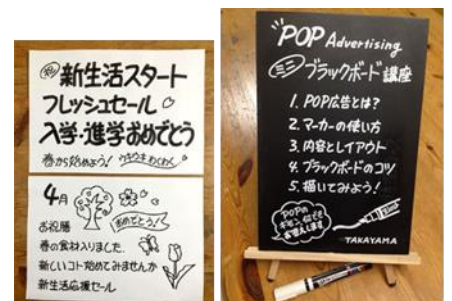 祝 新生活スタート
フレッシュセール
入学・進学おめでとう
春から始めよう! ウキウキわくわく
4月
おめでとう!
お祝膳
春の食材入りました
新しいコト始めてみませんか
新生活応援セール
POP Advertising
ミニブラックボード講座
1. POP広告とは?
2. マーカーの使い方
3. 内容とレイアウト
4. ブラックボードのコツ
5. 描いてみよう!
POPの
ギモン、何でも
お答えします
TAKAYAMA